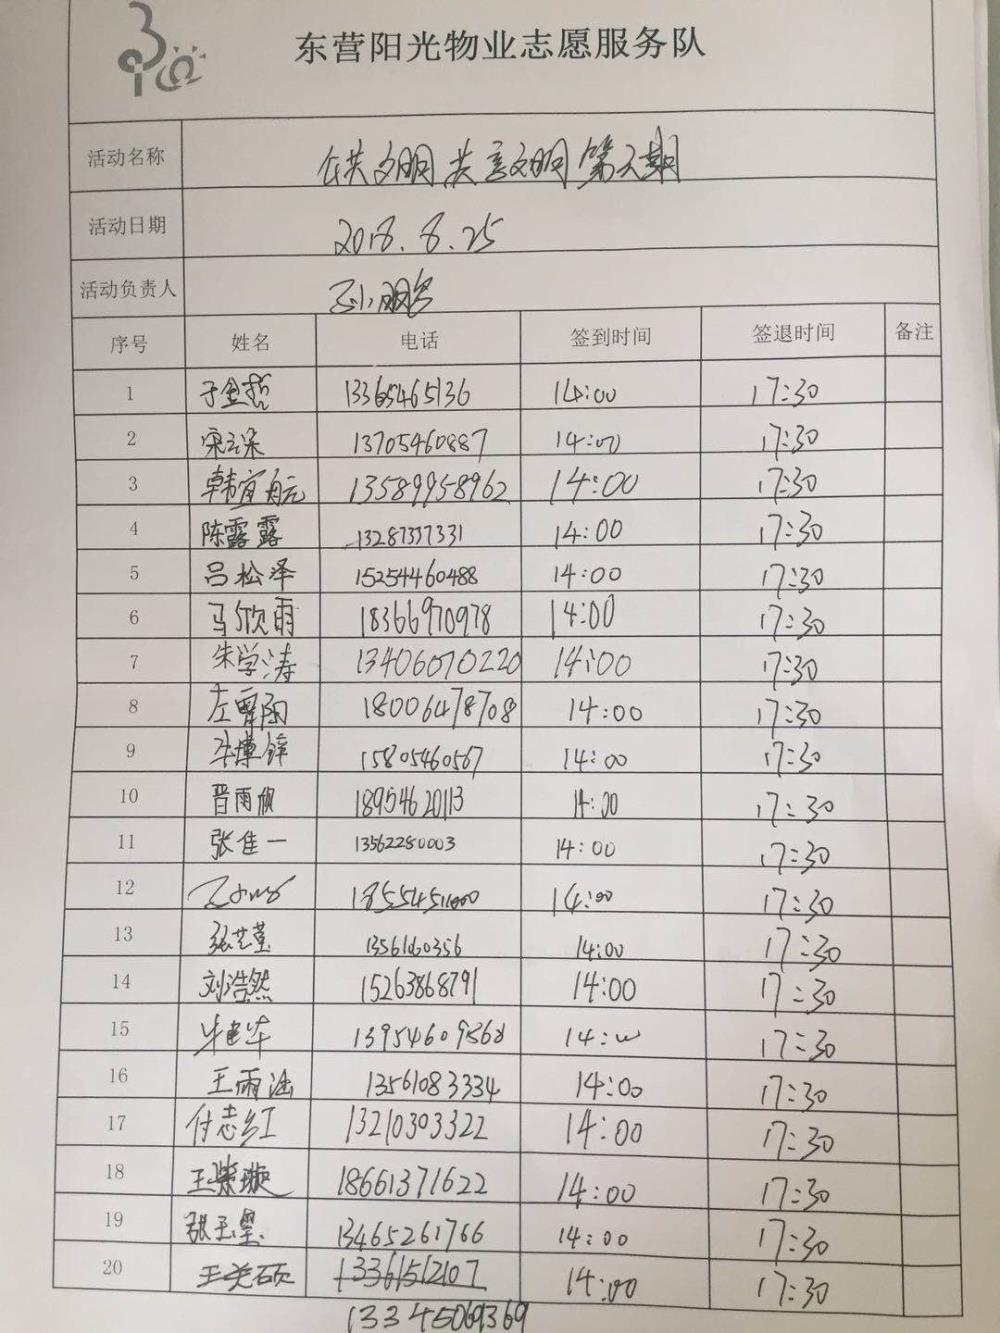 东营阳光物业志愿服务队
活动名称 文明共 文明第 期
活动日期 2018.8.25
活动负责人
序号 姓名 电话 签到时间 签退时间 备注
1 于金哲 13365465136 14:00 17:30
2 13705460887 14:00 17:30
3 韩宜航 13589958962 14:00 17:30
4 陈露露 13287357331 14:00 17:30
5 吕松泽 15254460488 14:00 17:30
6 马欣雨 18366970978 14:00 17:30
7 朱学涛 13406070220 14:00 17:30
8 左 阳 18006478708 14:00 17:30
9 15805460567 14:00 17:30
10 晋雨 18954620113 14:00 17:30
11 张佳一 13562280003 14:00 17:30
12 14:00 17:30
13 张艺莹 13561660356 14:00 17:30
14 刘浩然 15263868791 14:00 17:30
15 14:00 17:30
16 王雨涵 13561083334 14:00 17:30
17 付志红 13210303322 14:00 17:30
18 王紫璇 18661371622 14:00 17:30
19 张玉 13465261766 14:00 17:30
20 王 硕 13361512107 14:00 17:30
13345069369